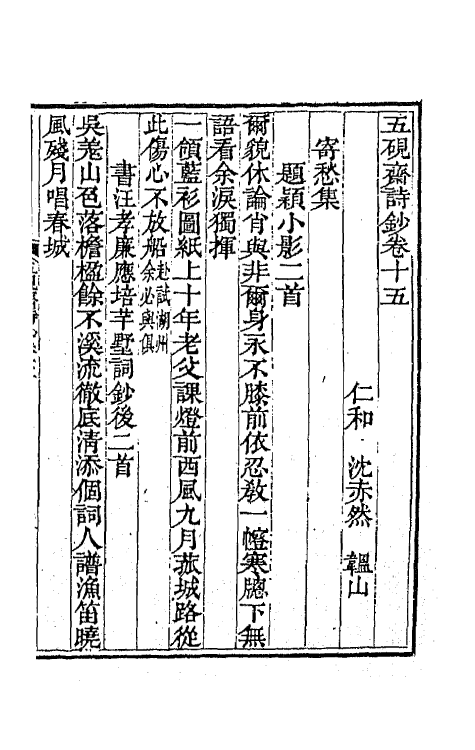 五硯齋詩鈔卷十五
仁和 沈赤然 韞山
寄愁集
題穎小影二首
爾貌休論肖與非爾身永不膝前依忍教一幢寒牕下無
語看余淚獨揮
一領藍衫圖紙上十年老父課燈前西風九月菰城路從
此傷心不放船赴試湖州余必與俱
書汪孝廉應培芋墅詞鈔後二首
吳羗山色落檐楹餘不溪流徹底清添個詞人譜漁笛曉
風殘月唱春城